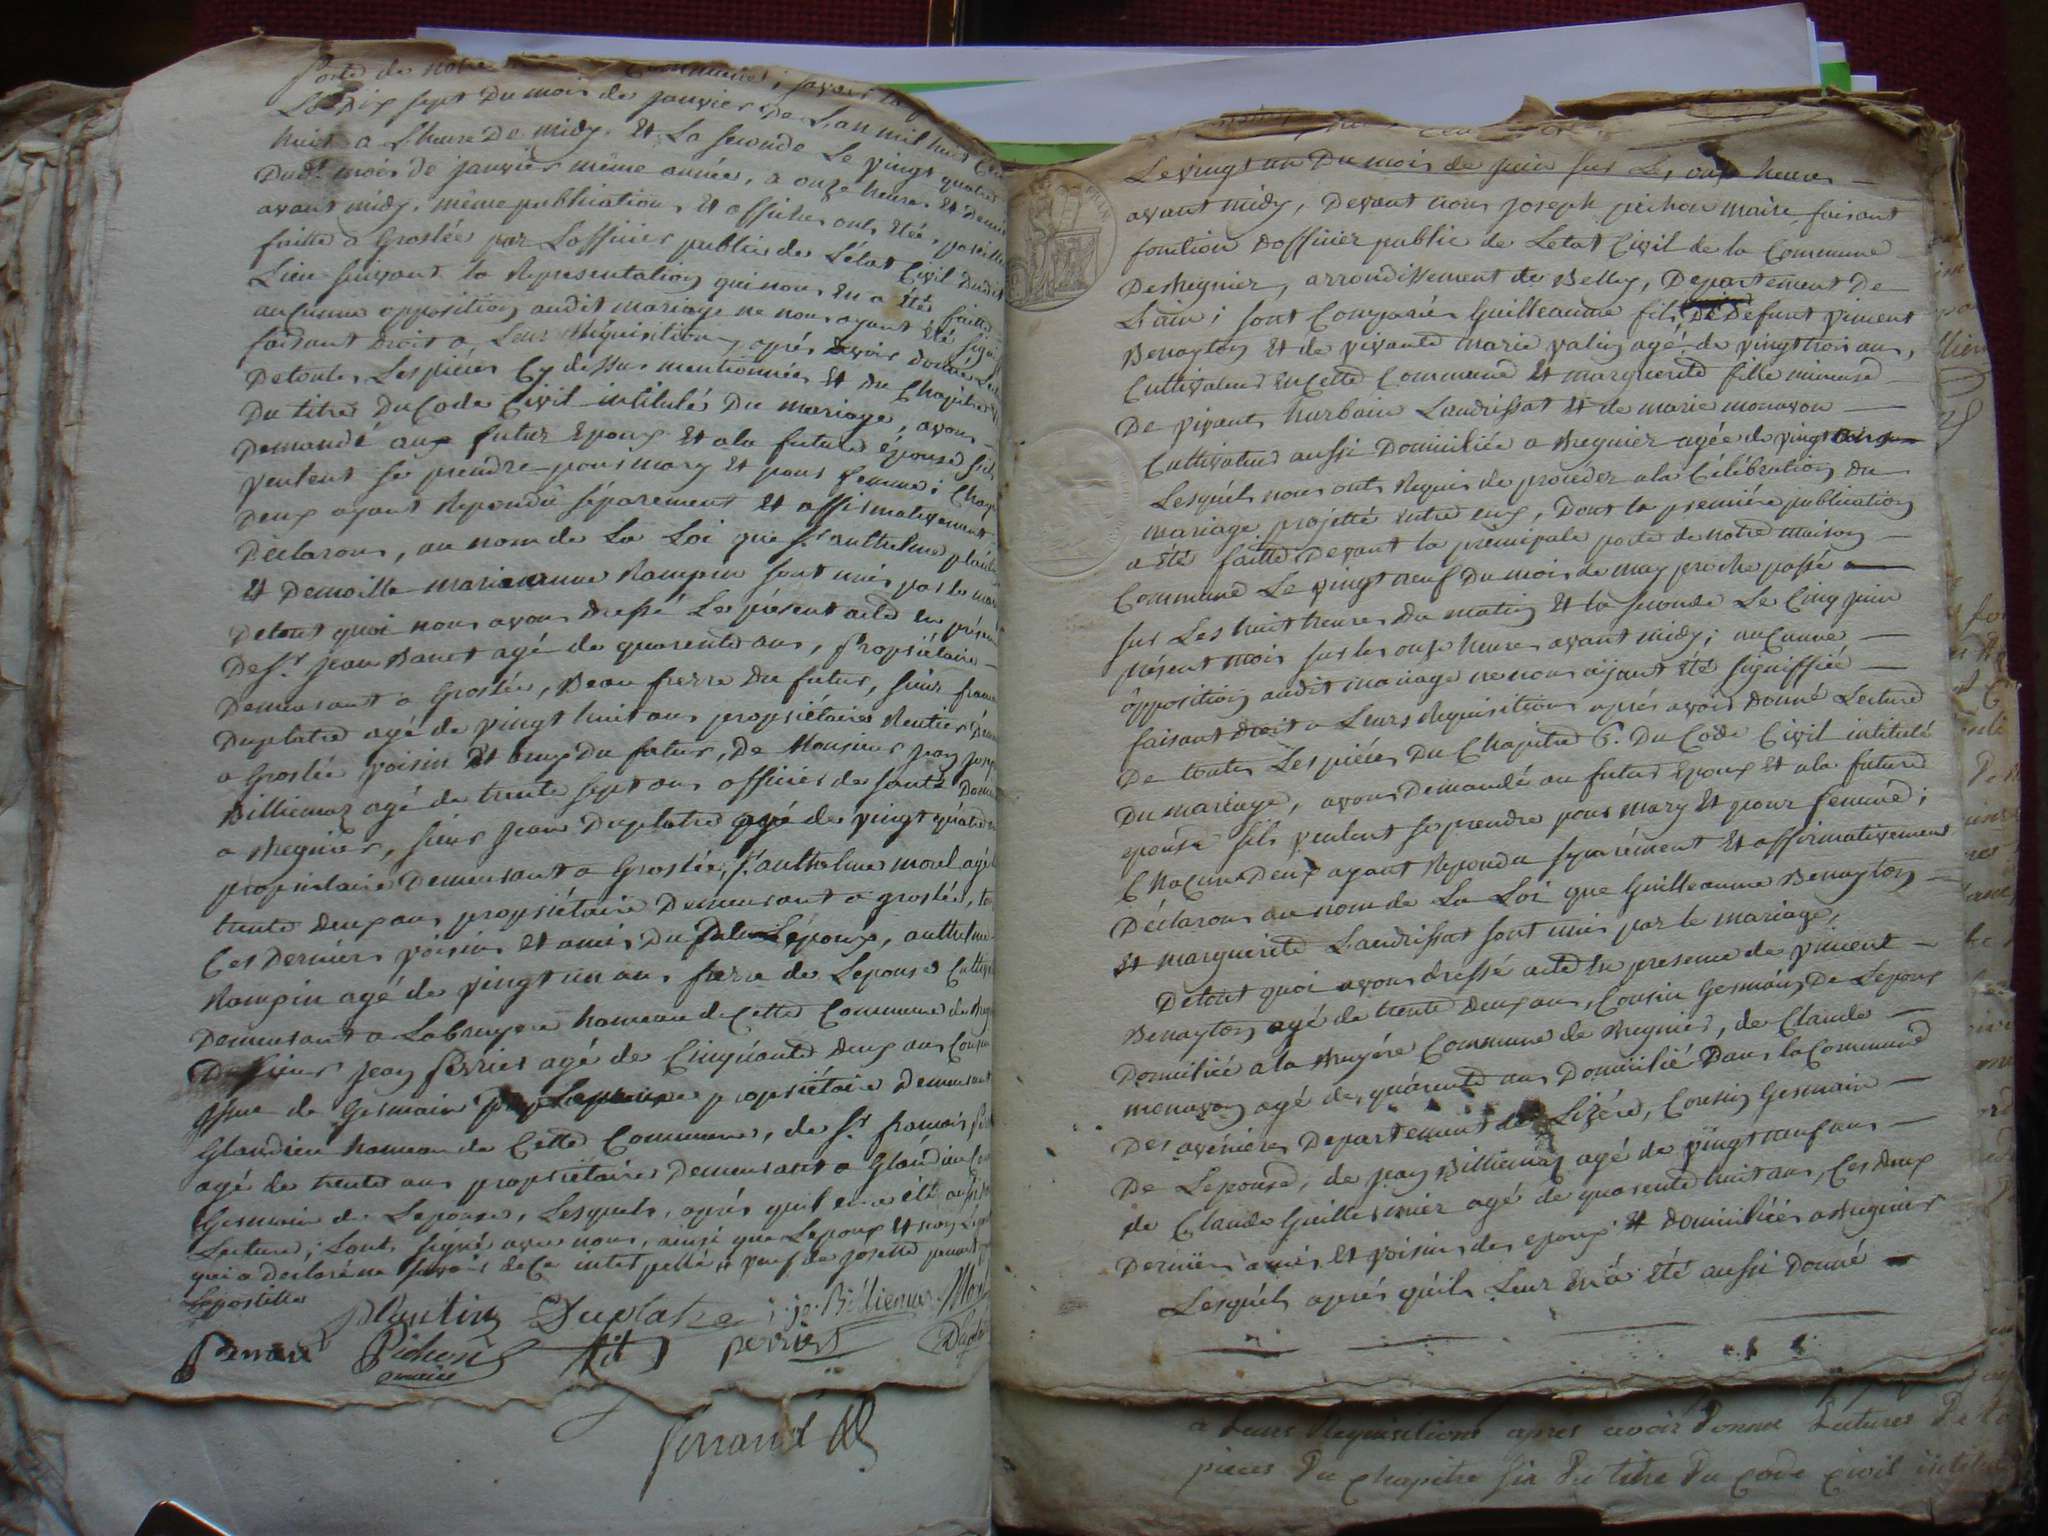 porte de notre
Le dix sept Du mois de janvier De L'an mil huit Cent
huit a L'heure De midy. Et La seconde Le vingt quatre
Dudt. mois de janvier même année, a onze heures et Demie
avant midy, même publications Et affiches onts étée, pareille
faitte a Groslée par L'officier public de L'état Civil Dudit
Lieu suivant la Représentation qui nous En a été faitte
aucunne opposition audit mariage ne nous ayant été signi
faisant droit a Leur Réquisition, aprés avoir donné Lec
De toutes Les piéces Cy dessus mentionnées Et du Chapitre
Du titre Du Code Civil intitulé Du mariage, avons
Demandé aux futur Epoux Et a la future épouse s'ils
veulent se prendre pour mary Et pour femme; Chaq
Deux ayant Repondu séparement Et affirmativement
Déclarons, au nom de La Loi que Sr. anthelme plantin
Et Demoille marieanne Rampin sont unis par le mar
De tout quoi nous avons dressé Le présent acte en présen
De Sr. jean Banet agé de quarente ans, Propriétaire
Demeurant a Groslée, Beau frerre du futur, sieur franc
Duplatre agé de vingt huit ans propriétaire Rentier Dem
a Groslée voisin Et amy Du futur, De Monsieur jean josep
Billiemaz agé de trente sept ans officier de santé Dom
a Regnier, sieur jean Duplatre agé de vingt quatre
propriétaire Demeurant a Groslée, Sr. anthelme morel agé
trente deux ans propriétaire Demeurant a groslée, to
Ces Derniers voisins Et amis Du L'époux, anthelme
Rampin agé de vingt un ans frerre de L'epouse Cultiv
Demeurant a Labruyere hameau de Cette Commune de Reg
sieur jean perrier agé de Cinquante deux ans Cous
Germain propriétaire Demeurant
Glandieu hameau de Cette Commune, de Sr. francois
agé de trente ans propriétaire Demeurant a Glandieu
Germain de L'epouse, Lesquels, aprés qu'il en a été aussi
Lecture; sont signé avec nous, ainsi que L'epoux Et non L'ep
qui a déclaré ne savoir de Ce interpellé,
plantin Duplatre j. jo. Billiemaz Mor
Pichon maire perrier Dupla
ferrand
Le vingt un Du mois de juin sur Les onze heures
avant midy, Devant nous joseph pichon maire faisant
fonction D'officier public de L'etat Civil de la Commune
De Regnier, arrondissement de Belley, Departement De
L'ain; sont Comparus Guilleaume fils De Defunt vincent
Benayton Et de vivante marie valin agé de vingt trois ans,
Cultivateur En Cette Commune Et marguerite fille mineure
De vivants hurbain Laudrissat Et de marie monavon
Cultivateur aussi Domiciliée a Regnier agée de vingt
Lesquels nous onts Requis de proceder a la Célébration du
mariage projetté entre eux, Dont la première publication
a été faitte Devant la principale porte de notre maison
Commune Le vingt neuf Du mois de may proche passé
sur Les huit heures du matin Et la seconde Le Cinq juin
présent mois sur les onze heures avant midy; aucunne
opposition audit mariage ne nous ayant été signiffiée
faisant droit a Leurs Requisitions aprés avoir donné Lecture
De toutes Les piéces Du Chapitre 6. Du Code Civil intitulé
Du mariage, avons Demandé au futur Epoux Et a la future
epouse s'ils veulent se prendre pour mary Et pour femme;
Chacun Deux ayant Repondu séparément Et affirmativement
Déclarons au nom de La Loi que Guilleaume Benayton
Et marguerite Laudrissat sont unis par le mariage,
De tout quoi avons dressé acte En presence de vincent
Benayton agé de trente deux ans, Cousin Germain De L'epoux
Domicilié a la Bruyére Commune de Regnier, de Claude
monavon agé de quarente ans Domicilié Dans la Commune
Des avenières Departement de L'izére, Cousin Germain
De L'epouse, de jean Billiemaz agé de vingt neuf ans
de Claude Guillermier agé de quarente huit ans, Ces deux
Derniers amis Et voisins des epoux Et domiciliés a Regnier
Lesquels aprés qu'ils Leur En a été aussi Donné
a Leurs Requisitions apres avoir Donné Lectures De to
pieces Du chapitre six Du titre Du Code Civil intitulé